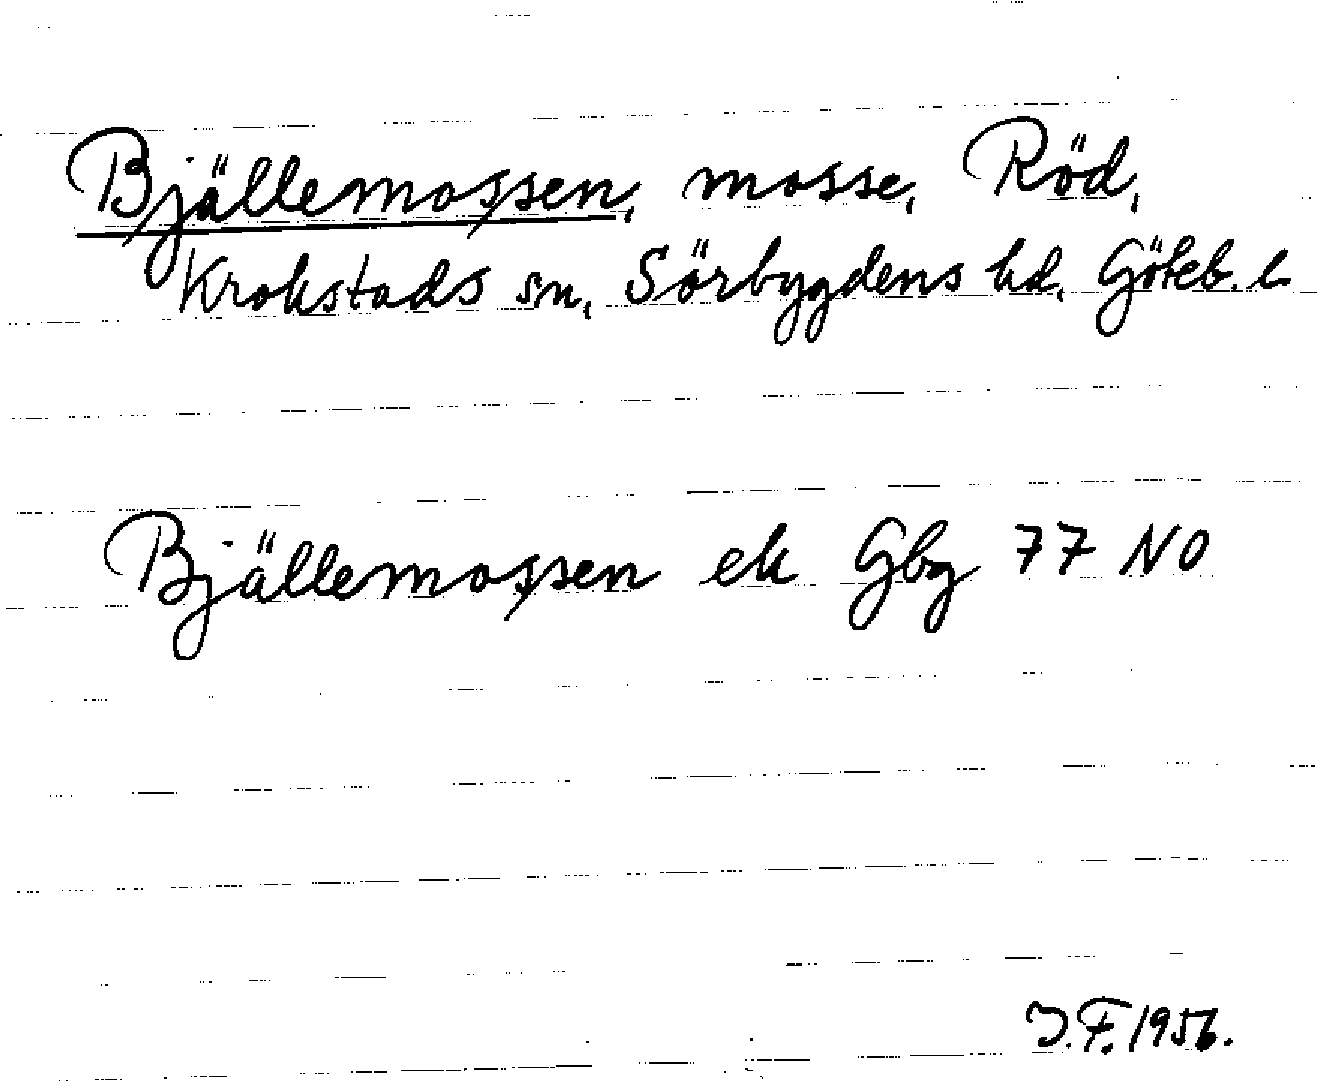 Bjällemossen, mosse, Röd,
Krokstads sn, Sörbygdens hd, Göteb. l
Bjällemossen ek Gbg 77 NO
J.F. 1956.